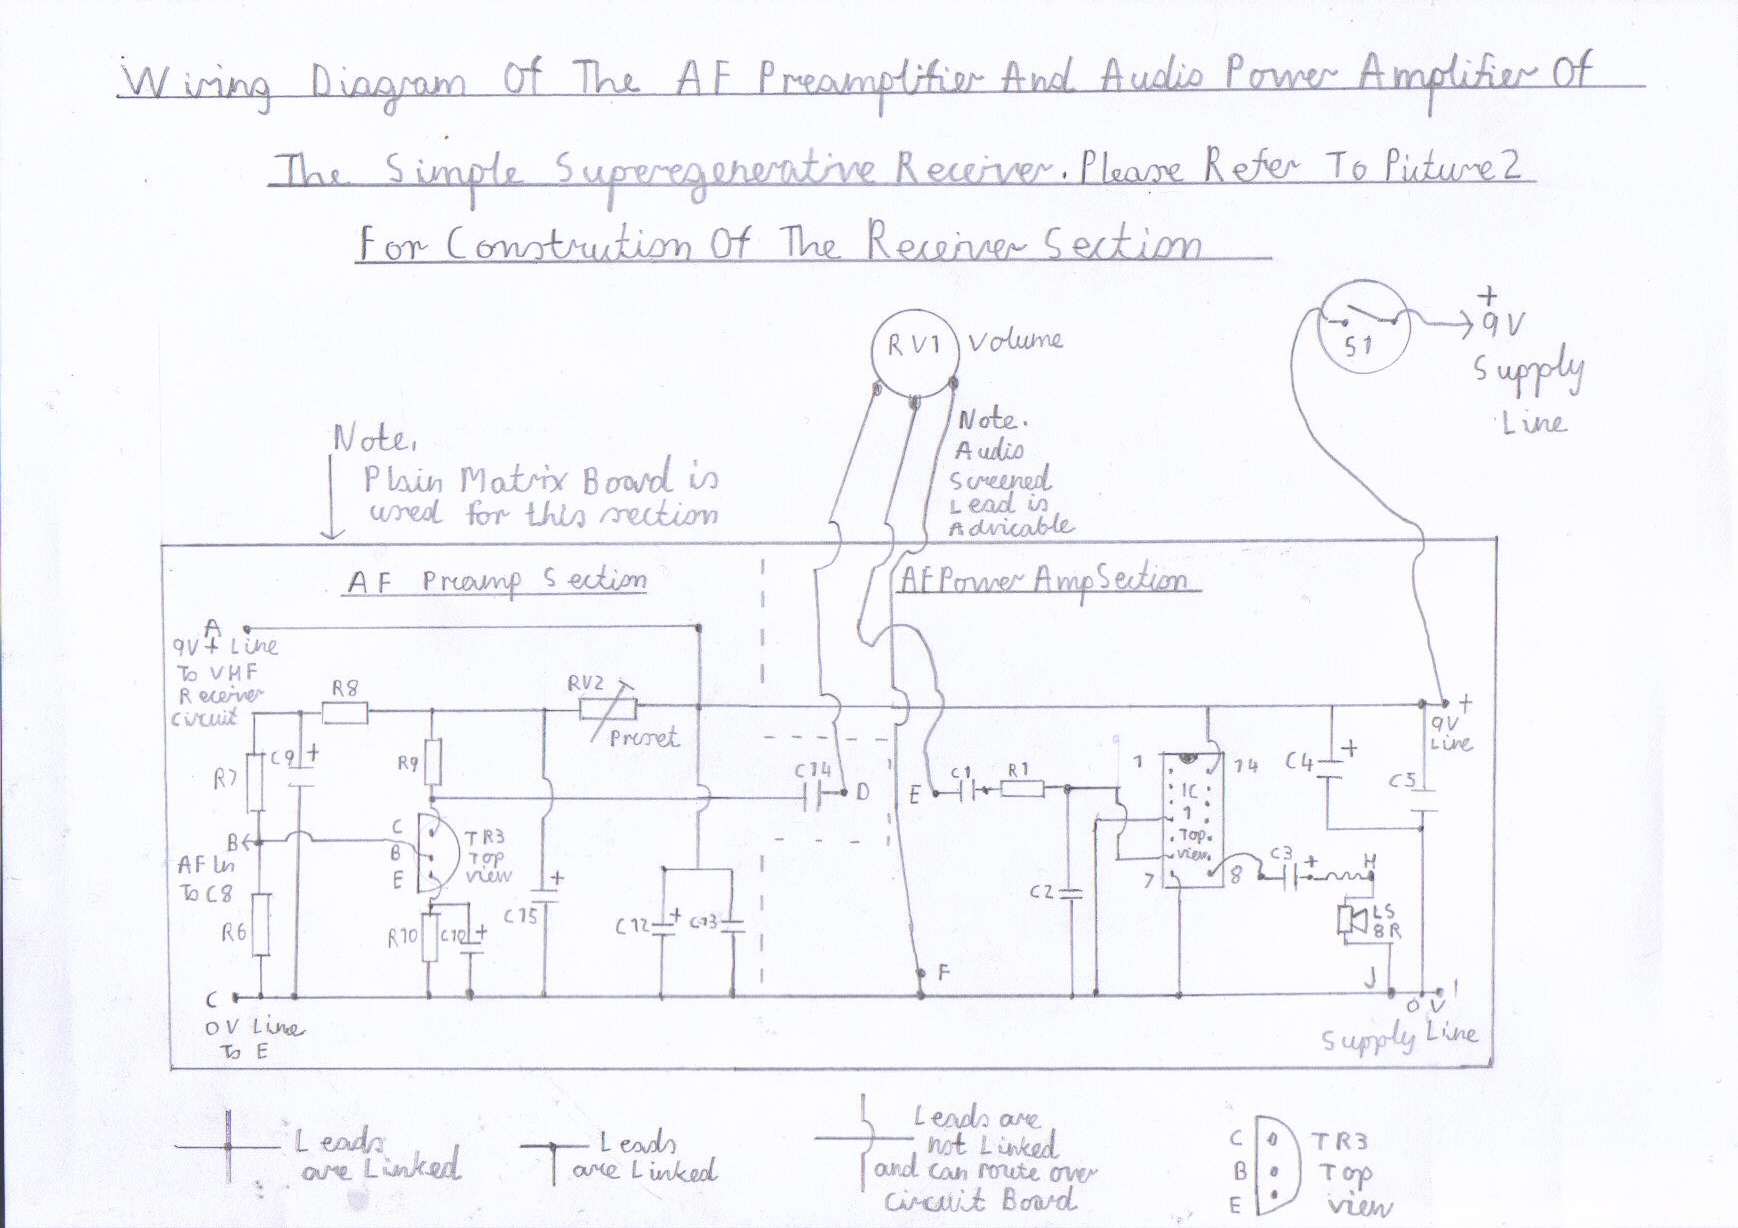 Wiring Diagram Of The AF Preamplifier And Audio Power Amplifier Of
The Simple Superegenerative Receiver. Please Refer To Picture 2
For Constrution Of The Receiver Section
RV1 Volume
S1
+
9V
Supply
Line
Note.
Plain Matrix Board is
used for this section
Note.
Audio
Screened
Lead is
Advicable
AF Preamp Section
AF Power Amp Section
A
9V + Line
To VHF
Receiver
Circuit
R8
RV2
Preset
R7
C9 +
R9
C14
D
E
C1
R1
1
14
IC
1
Top
view
7
8
C4 +
C5
+
9V
Line
B
AF In
To C8
R6
C
B
E
TR3
Top
view
R10
C10 +
C15 +
C12 +
C13
C2
C3 +
H
LS
8R
J
F
C
0V Line
To E
I
0V
Supply Line
Leads
are Linked
Leads
are Linked
Leads are
not Linked
and can route over
circuit Board
C
B
E
TR3
Top
view